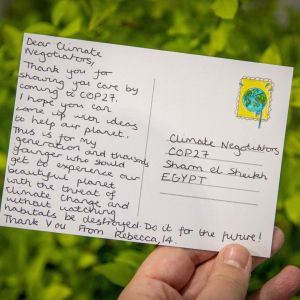 Dear Climate
Negotiators,
Thank you for
showing you care by
coming to COP27.
I hope you can
come up with ideas
to help our planet.
This is for my
generation and thousands
younger who should
get to experience our
beautiful planet
with the threat of
climate change and
without watching
habitats be destroyed. Do it for the future!
Thank You From Rebecca, 14.
Climate Negotiators
COP27
Sharm el Sheikh
EGYPT